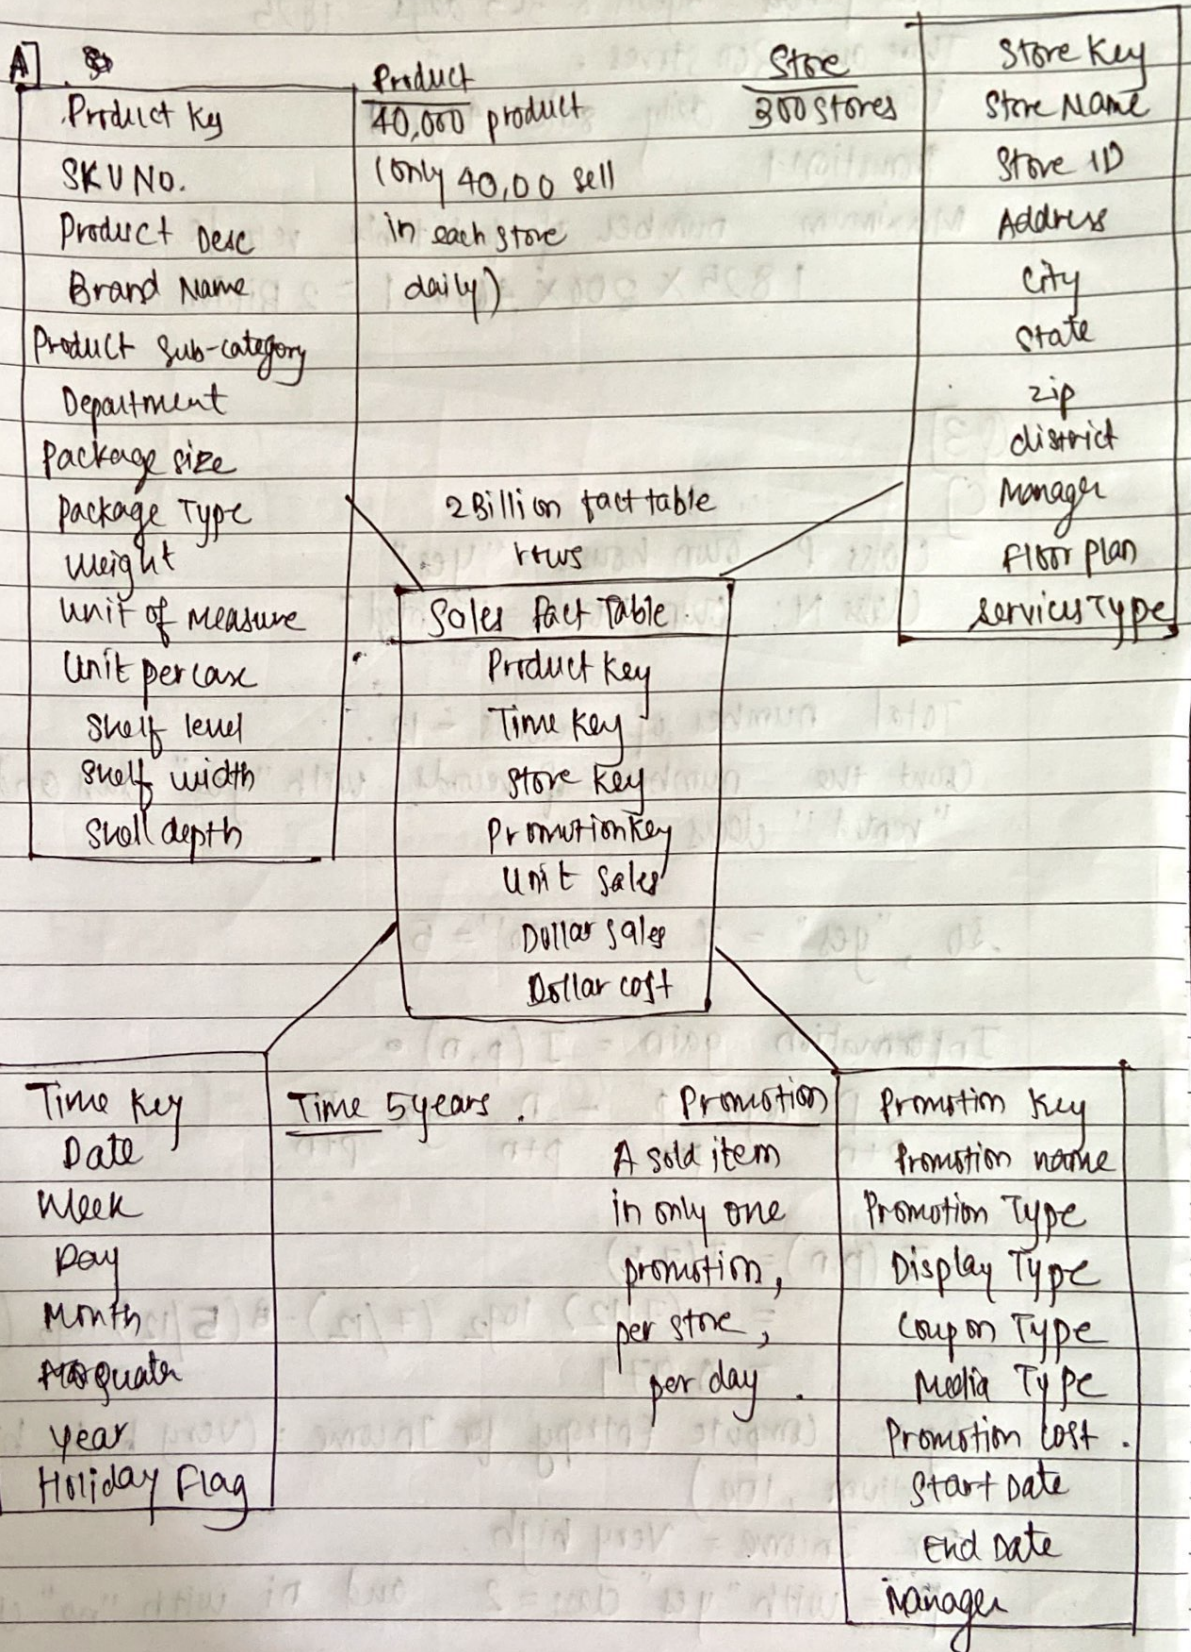 A]
Product Key
SKU No.
Product Desc
Brand Name
Product Sub-category
Department
Package size
Package Type
Weight
Unit of Measure
Unit per case
Shelf level
Shelf width
Shelf depth
Product
40,000 product
(only 40,00 sell
in each store
daily)
Store
300 stores
Store Key
Store Name
Store ID
Address
City
State
zip
district
Manager
Floor plan
services Type
2 Billion fact table
rows
Sales Fact Table
Product Key
Time Key
Store Key
Promotion Key
Unit Sales
Dollar Sales
Dollar cost
Time Key
Date
Week
Day
Month
Quater
Year
Holiday Flag
Time 5 years.
Promotion
A sold item
in only one
promotion,
per store,
per day.
Promotion Key
Promotion name
Promotion Type
Display Type
Coupon Type
Media Type
Promotion Cost.
Start Date
End Date
Manager